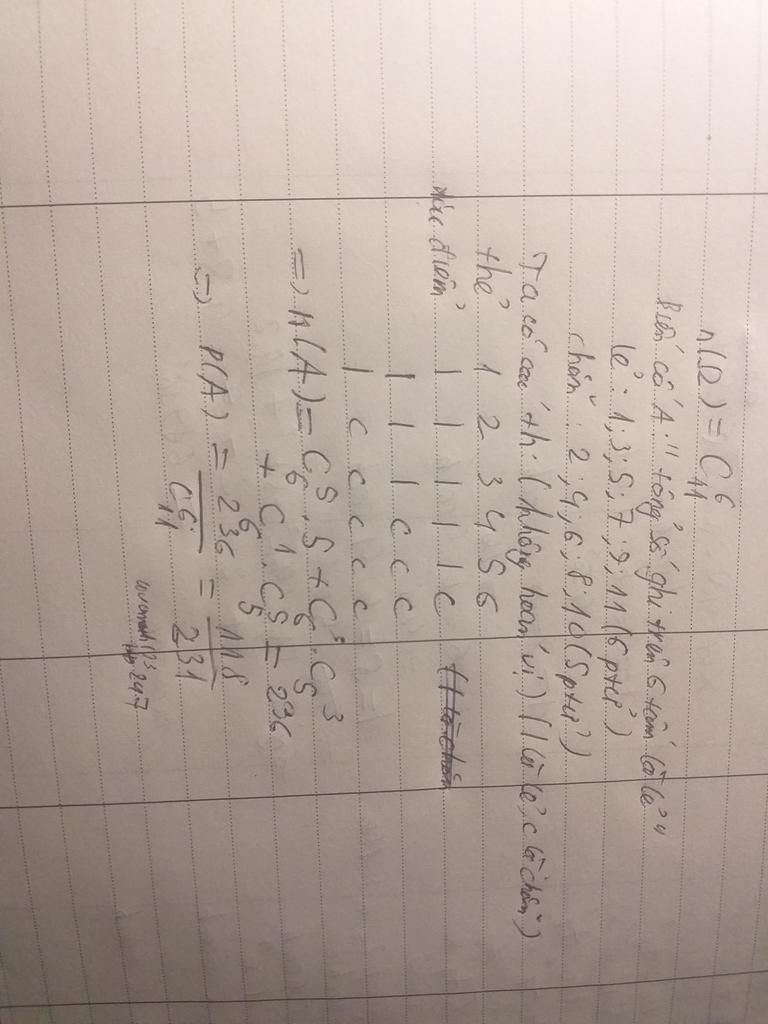 n(Ω) = C₁₁⁶
Biến cố A: "tổng số ghi trên 6 tấm là lẻ"
lẻ: 1;3;5;7;9;11 (6 ptử)
chẵn: 2;4;6;8;10 (5 ptử)
Ta có các th: (không hoán vị) (l là lẻ, c là chẵn)
thẻ 1 2 3 4 5 6
đặc điểm l l l l l c
l l l c c c
l c c c c c
=> n(A) = C₆⁵.5 + C₆³.C₅³
+ C₆¹.C₅⁵ = 236
=> P(A) = 236/C₁₁⁶ = 118/231